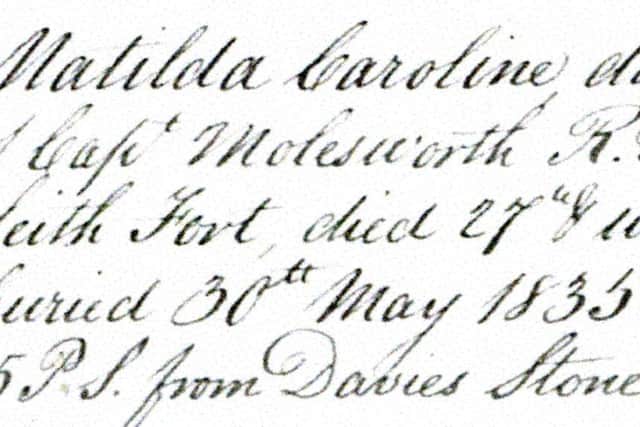 Matilda Caroline, da
f Capt Molesworth R.
Leith Fort, died 27th & w
buried 30th May 1835
5 P.S. from Davies Stone